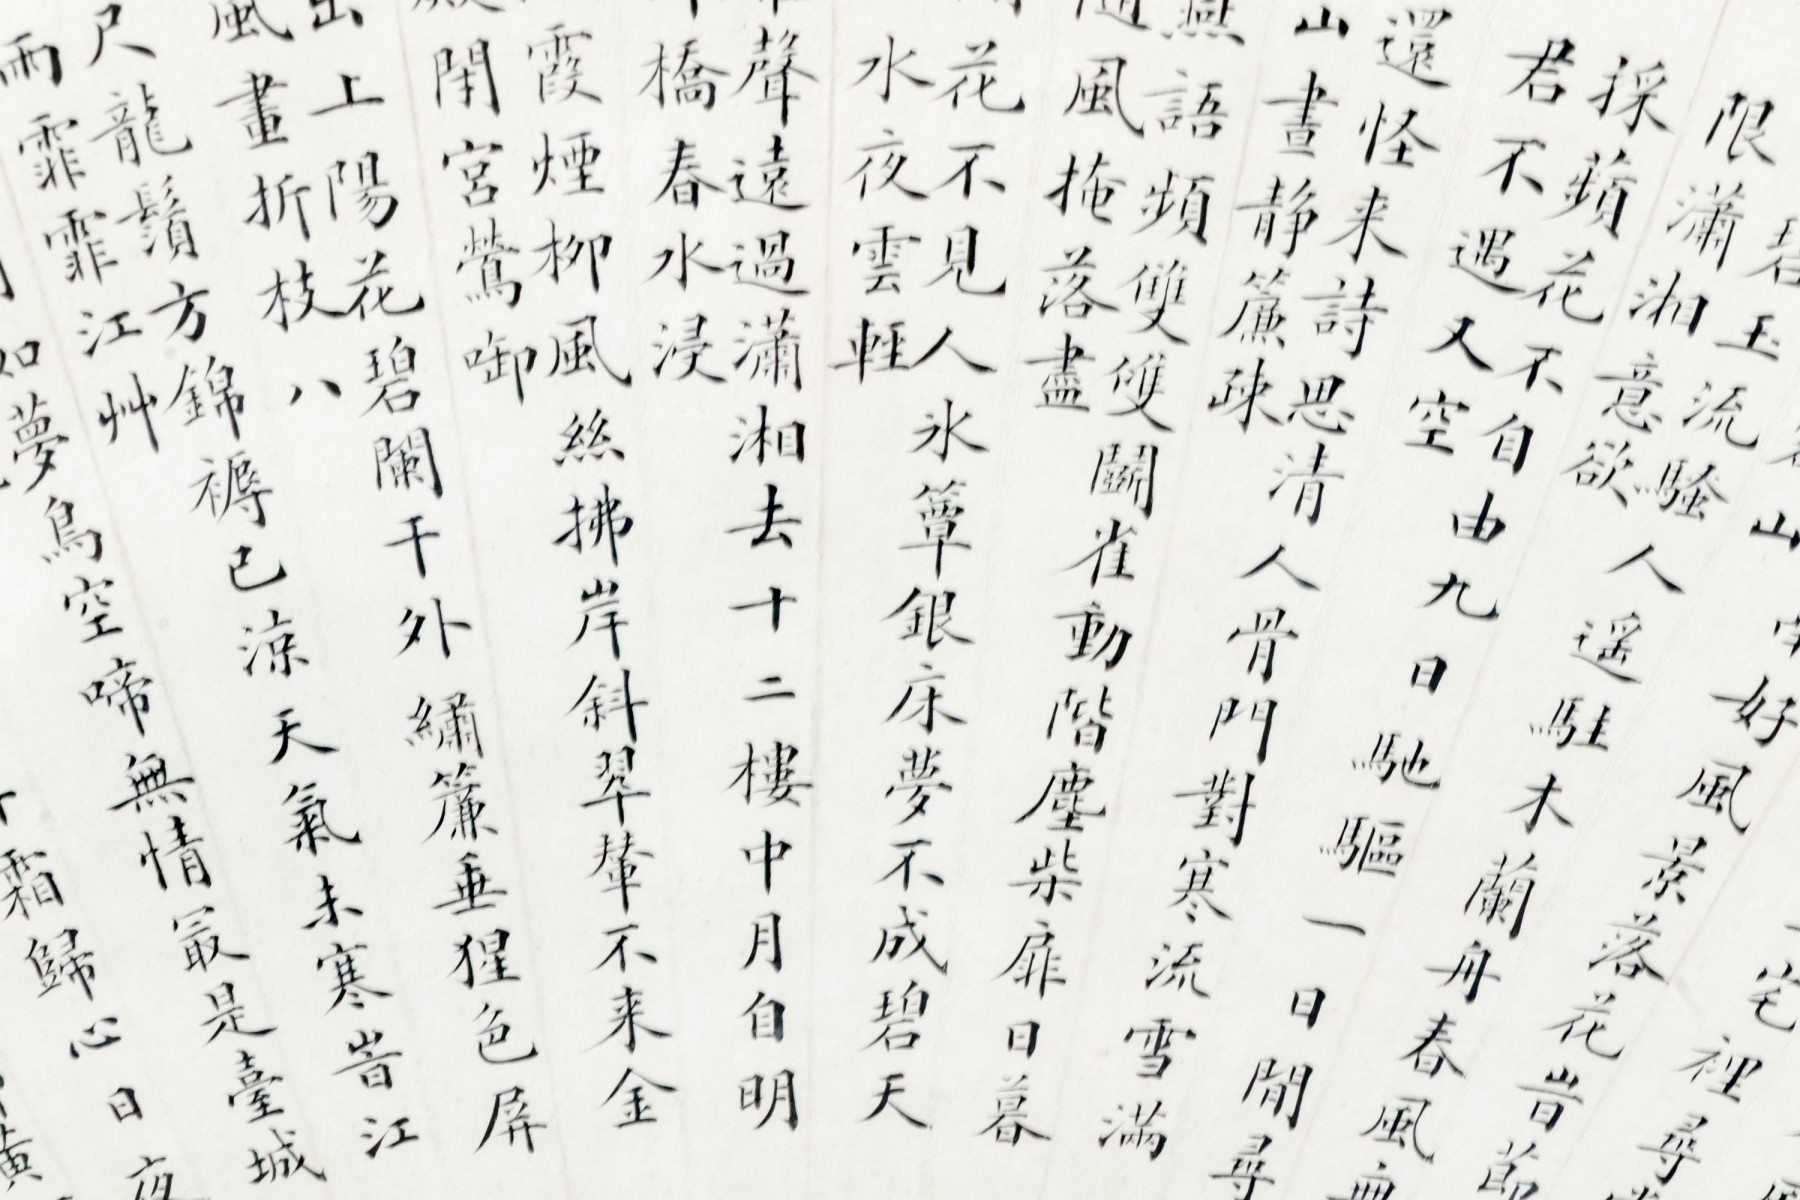 宅裡尋
好風景落花旹節
碧玉流騷人遙駐木蘭舟春風無
限瀟湘意欲
採蘋花不自由九日馳驅一日閒尋
君不遇又空
還怪来詩思清人骨門對寒流雪滿
山晝静簾疎
燕語頻雙雙鬭雀動階塵柴扉日暮
随風掩落盡
花不見人氷簟銀床夢不成碧天
水夜雲輕
聲遠過瀟湘去十二樓中月自明
橋春水浸
霞煙柳風絲拂岸斜翠輦不来金
殿閉宮鶯啣
出上陽花碧闌干外繡簾垂猩色屏
風畫折枝八
尺龍鬚方錦褥已涼天氣未寒旹江
雨霏霏江艸
如夢鳥空啼無情㝡是臺城
霜歸心日夜
黃